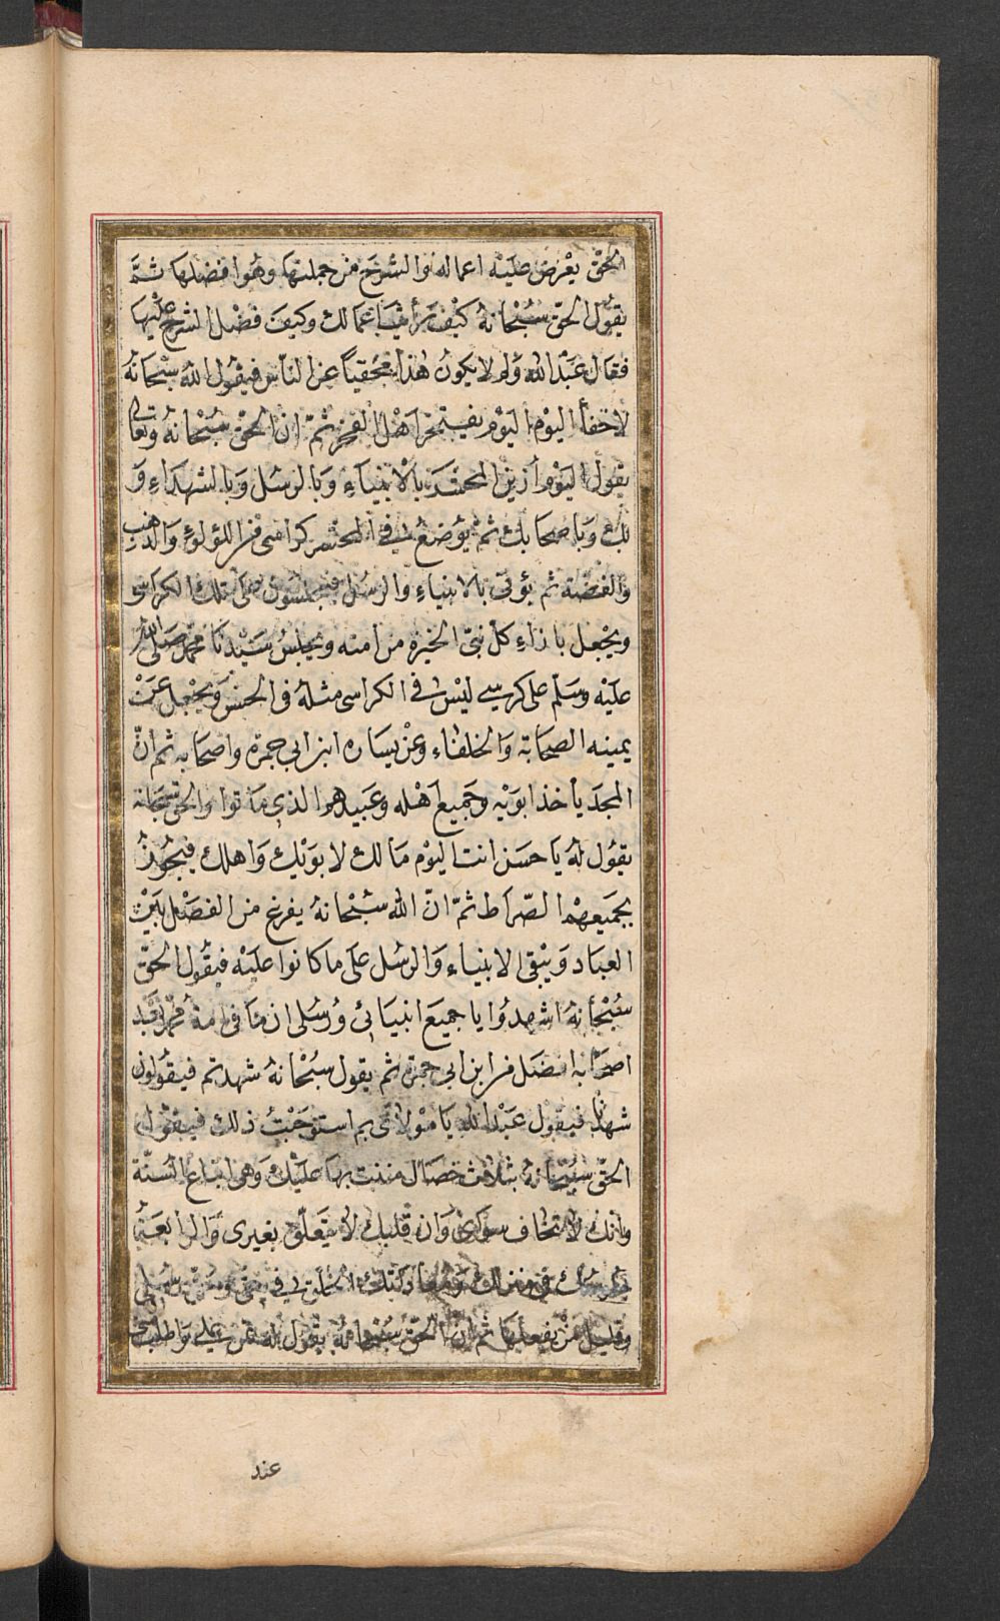 الحق يعرض عليه اعماله والشرح من جملتها وهوا فضلها ثمَّ
يقول الحق سُبْحانهُ كيْفَ رَأيْتَ اعمالك وكيفَ فضْل الشرح عليْها
فقال عَبْد الله ولم لا يكونُ هٰذا مخفياً عن الناس فيقول الله سبْحَانهُ
لا خفأ اليوْم اليَوْم يفتخر اهْل الفخر ثمّ ان الحق سُبْحانهُ وتعالى
يقول اليَوْم أزين المحشَر بالأنبيَاءِ وَبالرسُل وَبالشهدَاءِ وَ
بك وَبأصحَابك ثمّ يُوضعُ في المحشر كراسي من اللؤلؤ وَالذهب
وَالفضّة ثم يؤتى بالانبيَاءِ وَالرسُل فيجلسُون على تلك الكراسي
ويجْعل بازاءِ كلّ نبيّ الخيرة من امته ويجلسُ سَيّدنَا محمّد صَلى الله
عليْه وسَلم على كرسي ليْسَ في الكراسي مثلهُ في الحسْن وَيجْعل عَنْ
يمينه الصحَابة وَالخلفاء وعنْ يسَاره ابن ابي جمرة واصحَابه ثم انّ
المجدَ يأخذ ابوَيْه وجَميع اهْله وعَبيدهم الذي مَاتوا والحق سُبْحَانه
يقول لهُ يا حسَن انت اليوْم مَالك لابوَيْك وَاهلك فيجُوزُ
بجميعهمُ الصّراط ثمّ انّ الله سُبْحانهُ يفرغ من الفصْل بَيْن
العبَاد وَيبْقى الانبيَاء وَالرسُل على ما كانوا عليْه فيقُول الحَقّ
سُبْحَانهُ اشهدُوا يا جميعَ انبيَائي وُرسُلي ان مَا في امة محمّد بَعْد
اصحَابه افضَل من ابن ابي جمرة ثم يقول سُبْحانهُ شهدتم فيقولون
شهدْنا فيقول عَبْد الله يا مَوْلاي بم استوجَبْتُ ذلك فيقول
الحَقّ سُبْحَانهُ بثلاث خصَال مننت بهَا عليْك وَهي اتبَاع السُنّة
وَانك لا تخاف سوَاي وَانّ قلبك لا يتعَلّق بغيري وَالرابعَة
وقليل مَنْ يفعلهَا ثم انّ الحَقّ سُبْحانهُ يقول له
عند